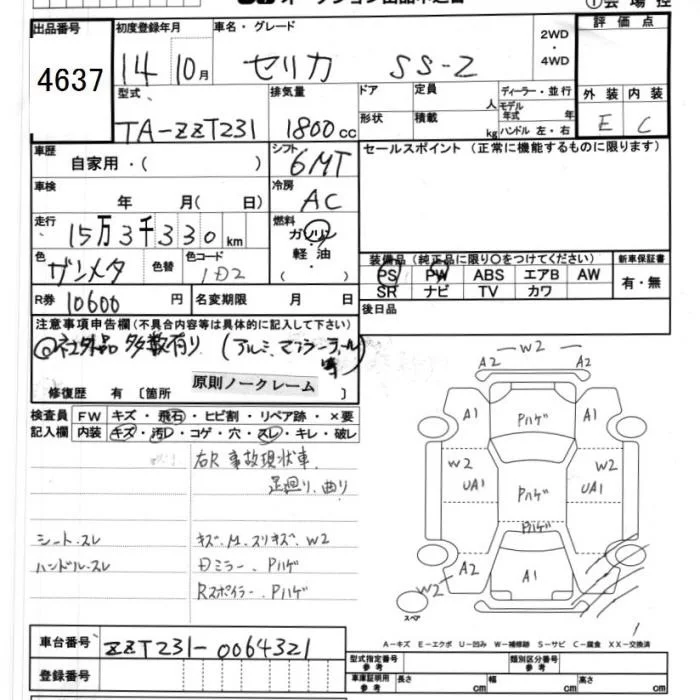 出品番号 初度登録年月 車名・グレード 2WD・4WD 評価点
4637 14 10月 セリカ SS-2
型式 排気量 ドア 定員 人 ディーラー・並行 外装 内装
TA-ZZT231 1800cc 形状 積載 kg モデル年式 年 ハンドル 左・右 E C
車歴 自家用・( ) シフト 6MT セールスポイント(正常に機能するものに限ります)
車検 年 月( 日) 冷房 AC
走行 15万3千330km 燃料 ガソリン・軽油・( )
色 ガンメタ 色替 色コード 1D2 装備品(純正品に限り○をつけてください) 新車保証書
PS PW ABS エアB AW 有・無
SR ナビ TV カワ
R券 10600円 名変期限 月 日 後日品
注意事項申告欄(不具合内容等は具体的に記入して下さい)
社外品 多数有り (アルミ、マフラー、ラール等)
修復歴 有 〔箇所 原則ノークレーム
検査員記入欄 FW キズ・飛石・ヒビ割・リペア跡・×要
内装 キズ・汚レ・コゲ・穴・スレ・キレ・破レ
右R 事故現状車.
足廻り、曲り
シート.スレ キズ.M.スリキズ.W2
ハンドル.スレ Dミラー.Pハゲ
Rスポイラー.Pハゲ
W2
A2 A2
A1 Pハゲ A1
W2 W2
UA1 Pハゲ UA1
Pハゲ
A2 A1
W2
スペア
A-キズ E-エクボ U-凹み W-補修跡 S-サビ C-腐食 XX-交換済
車台番号 ZZT231-0064321
登録番号
型式指定番号 参考 類別区分番号 参考
車庫証明用 参考 長さ cm 幅 cm 高さ cm